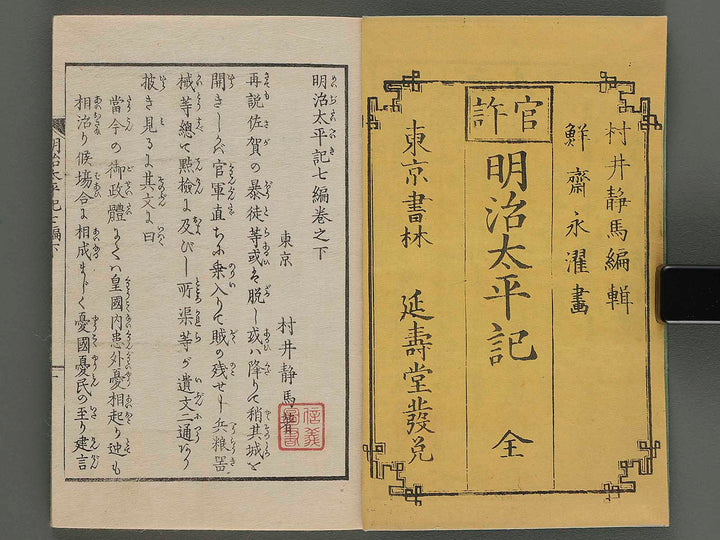 村井静馬編輯
鮮齋永濯畫
官許
明治太平記 全
東京書林 延壽堂發兌
明治太平記七編卷之下
東京 村井静馬著
再說佐賀の暴徒等或は脱し或ハ降りて稍其城を
開きしかバ官軍直ちに乗入りて賊の残せし兵粮器
械等總て㸃檢に及びし所渠等が遺文二通あり
披き見るに其文に曰
當今の御政體にてハ皇國内患外憂相起り迚も
相治り候場合に相成まじく憂國憂民の至り建言
明治太平記七編下
一
信義